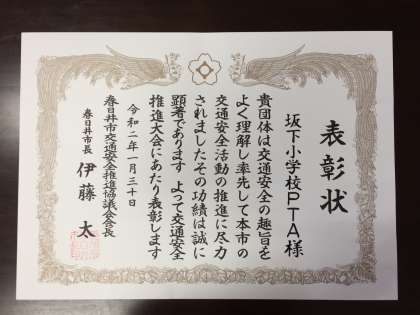 表彰状
坂下小学校PTA様
貴団体は交通安全の趣旨を
よく理解し率先して本市の
交通安全活動の推進に尽力
されましたその功績は誠に
顕著であります よって交通安全
推進大会にあたり表彰します
令和二年一月三十日
春日井市交通安全推進協議会会長
春日井市長 伊藤 太